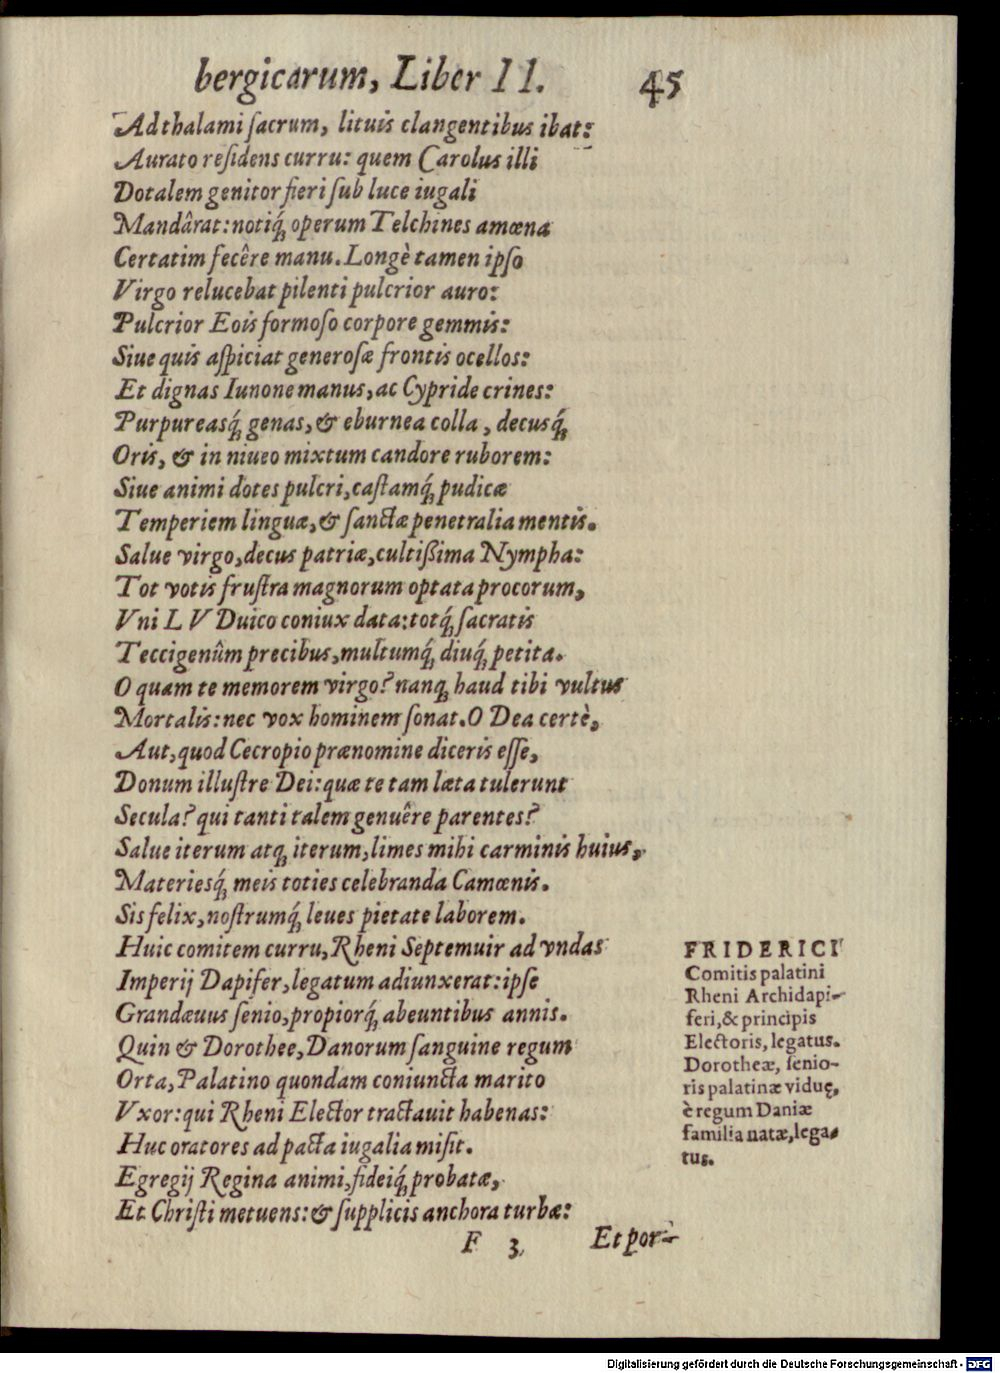 bergicarum, Liber II. 45
Ad thalami sacrum, lituis clangentibus ibat:
Aurato residens curru: quem Carolus illi
Dotalem genitor fieri sub luce iugali
Mandârat: notiq́; operum Telchines amœna
Certatim fecêre manu. Longè tamen ipso
Virgo relucebat pilenti pulcrior auro:
Pulcrior Eois formoso corpore gemmis:
Siue quis aspiciat generosæ frontis ocellos:
Et dignas Iunone manus, ac Cypride crines:
Purpureasq́; genas, & eburnea colla, decusq́;
Oris, & in niueo mixtum candore ruborem:
Siue animi dotes pulcri, castamq́; pudicæ
Temperiem linguæ, & sanctæ penetralia mentis.
Salue virgo, decus patriæ, cultißima Nympha:
Tot votis frustra magnorum optata procorum,
Vni L V Duico coniux data: totq́; sacratis
Teccigenûm precibus, multumq́; diuq́; petita.
O quam te memorem virgo? nanq; haud tibi vultus
Mortalis: nec vox hominem sonat. O Dea certè,
Aut, quod Cecropio prænomine diceris esse,
Donum illustre Dei: quæ te tam læta tulerunt
Secula? qui tanti talem genuêre parentes?
Salue iterum atq; iterum, limes mihi carminis huius,
Materiesq́; meis toties celebranda Camœnis.
Sis felix, nostrumq́; leues pietate laborem.
Huic comitem curru, Rheni Septemuir ad vndas
Imperij Dapifer, legatum adiunxerat: ipse
Grandæuus senio, propiorq́; abeuntibus annis.
Quin & Dorothee, Danorum sanguine regum
Orta, Palatino quondam coniuncta marito
Vxor: qui Rheni Elector tractauit habenas:
Huc oratores ad pacta iugalia misit.
Egregij Regina animi, fideiq́; probatæ,
Et Christi metuens: & supplicis anchora turbæ:
F 3 Et por-
FRIDERICI
Comitis palatini
Rheni Archidapi-
feri, & principis
Electoris, legatus.
Dorotheæ, senio-
ris palatinæ viduę,
è regum Daniæ
familia natæ, lega-
tus.
Digitalisierung gefördert durch die Deutsche Forschungsgemeinschaft - DFG